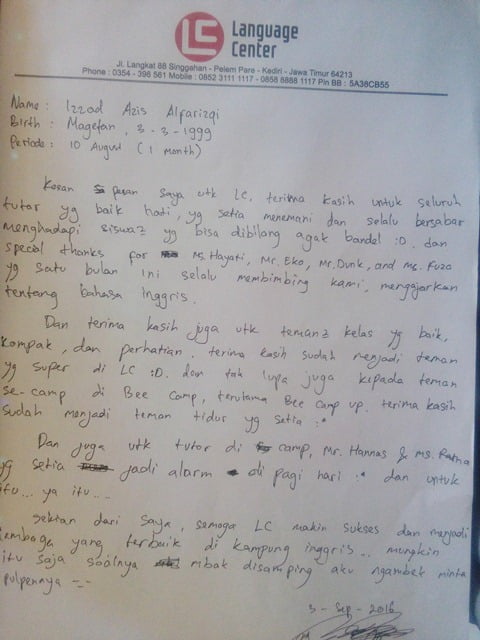 LC Language
Center
Jl. Langkat 88 Singgahan - Pelem Pare - Kediri - Jawa Timur 64213
Phone : 0354 - 396 561 Mobile : 0852 3111 1117 - 0858 8888 1117 Pin BB : 5A38CB55
Name : Izzad Azis Alfarizqi
Birth : Magetan, 3-3-1999
Periode : 10 August (1 Month)
Kesan pesan saya utk LC, terima kasih untuk seluruh
tutor yg baik hati, yg setia menemani dan selalu bersabar
menghadapi siswa2 yg bisa dibilang agak bandel :D. dan
special thanks for Ms. Hayati, Mr. Eko, Mr. Dunk, and Ms. Fuza
yg satu bulan ini selalu membimbing kami, mengajarkan
tentang bahasa Inggris.
Dan terima kasih juga utk teman2 kelas yg baik,
kompak, dan perhatian. terima kasih sudah menjadi teman
yg super di LC :D. dan tak lupa juga kepada teman
se-camp di Bee Camp, terutama Bee Camp up. terima kasih
sudah menjadi teman tidur yg setia :*
Dan juga utk tutor di camp, Mr. Hannas & Ms. Ratna
yg setia jadi alarm di pagi hari :* dan untuk
itu... ya itu....
sekian dari saya, semoga LC makin sukses dan menjadi
lembaga yang terbaik di kampung inggris... mungkin
itu saja soalnya mbak disamping aku ngambek minta
pulpennya -_-
3 - Sep - 2016